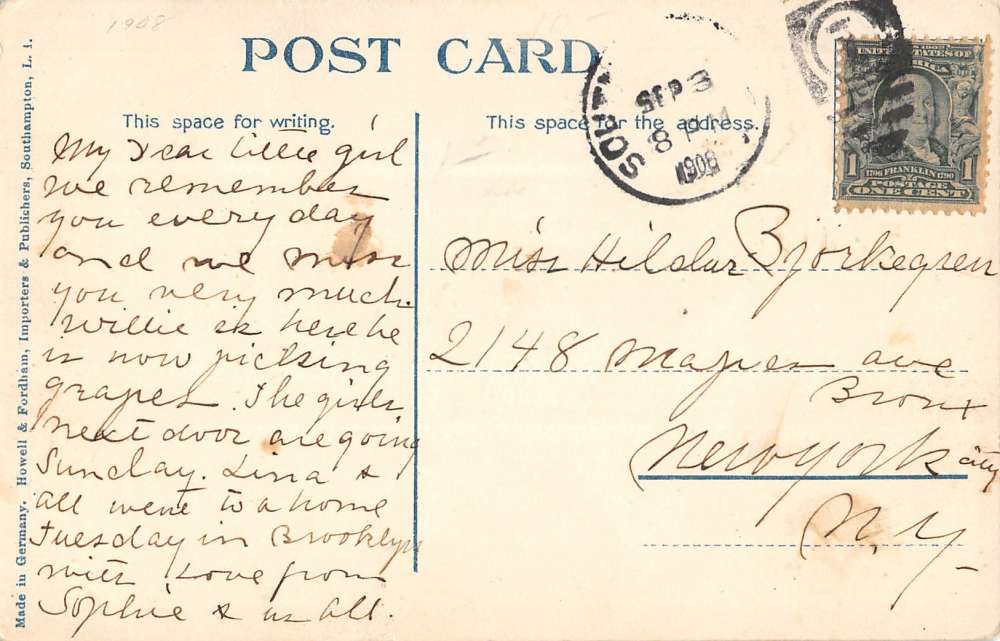 1908
POST CARD
This space for writing.
This space for the address.
Made in Germany. Howell & Fordham, Importers & Publishers, Southampton, L. I.
My Dear little girl
we remember
you every day
and we miss
you very much.
Willie is here he
is now picking
grapes. The girls
next door are going
Sunday. Lina &
all went to a home
Tuesday in Brooklyn
with Love from
Sophie & us All.
SEP 3
8 PM
1908
UNITED STATES OF
AMERICA
1 1
1706 FRANKLIN 1790
POSTAGE
ONE CENT
Miss Hildur Bjorkegren
2148 Mapes ave
Bronx
New York city
N.Y.